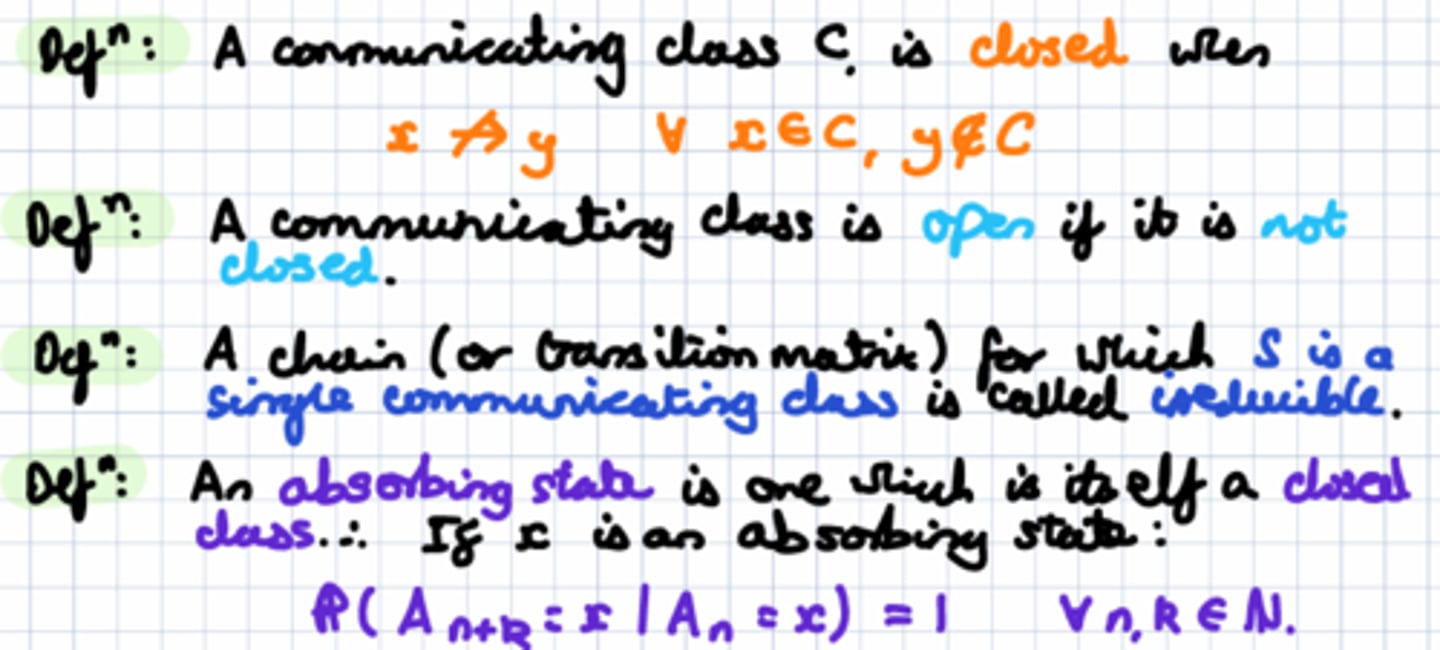 Defⁿ: A communicating class C, is closed when
x ↛ y ∀ x ∈ C, y ∉ C
Defⁿ: A communicating class is open if it is not
closed.
Defⁿ: A chain (or transition matrix) for which S is a
single communicating class is called irreducible.
Defⁿ: An absorbing state is one which is itself a closed
class. ∴ If x is an absorbing state:
ℙ(Aₙ₊ₖ = x | Aₙ = x) = 1 ∀ n, k ∈ ℕ.